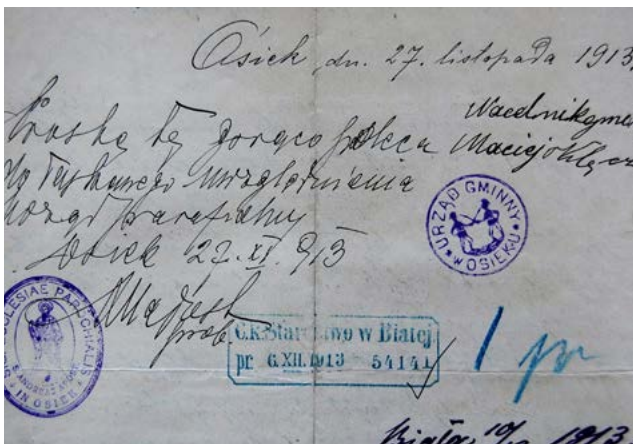 Osiek, dn. 27. listopada 1913
Naczelnik gmi
Maciej Klęcz
Prośbę tę gorąco poleca
do łaskawego uwzględnienia
Urząd parafialny
Osiek 22. XI. 913
prob.
URZĄD GMINNY
W OSIEKU
ECCLESIAE PAROCHIALIS
S. ANDREAE APOST.
IN OSIEK
C.k. Starostwo w Białej
pr. 6.XII.1913 54141
1 pr
Biała, 10/ 1913